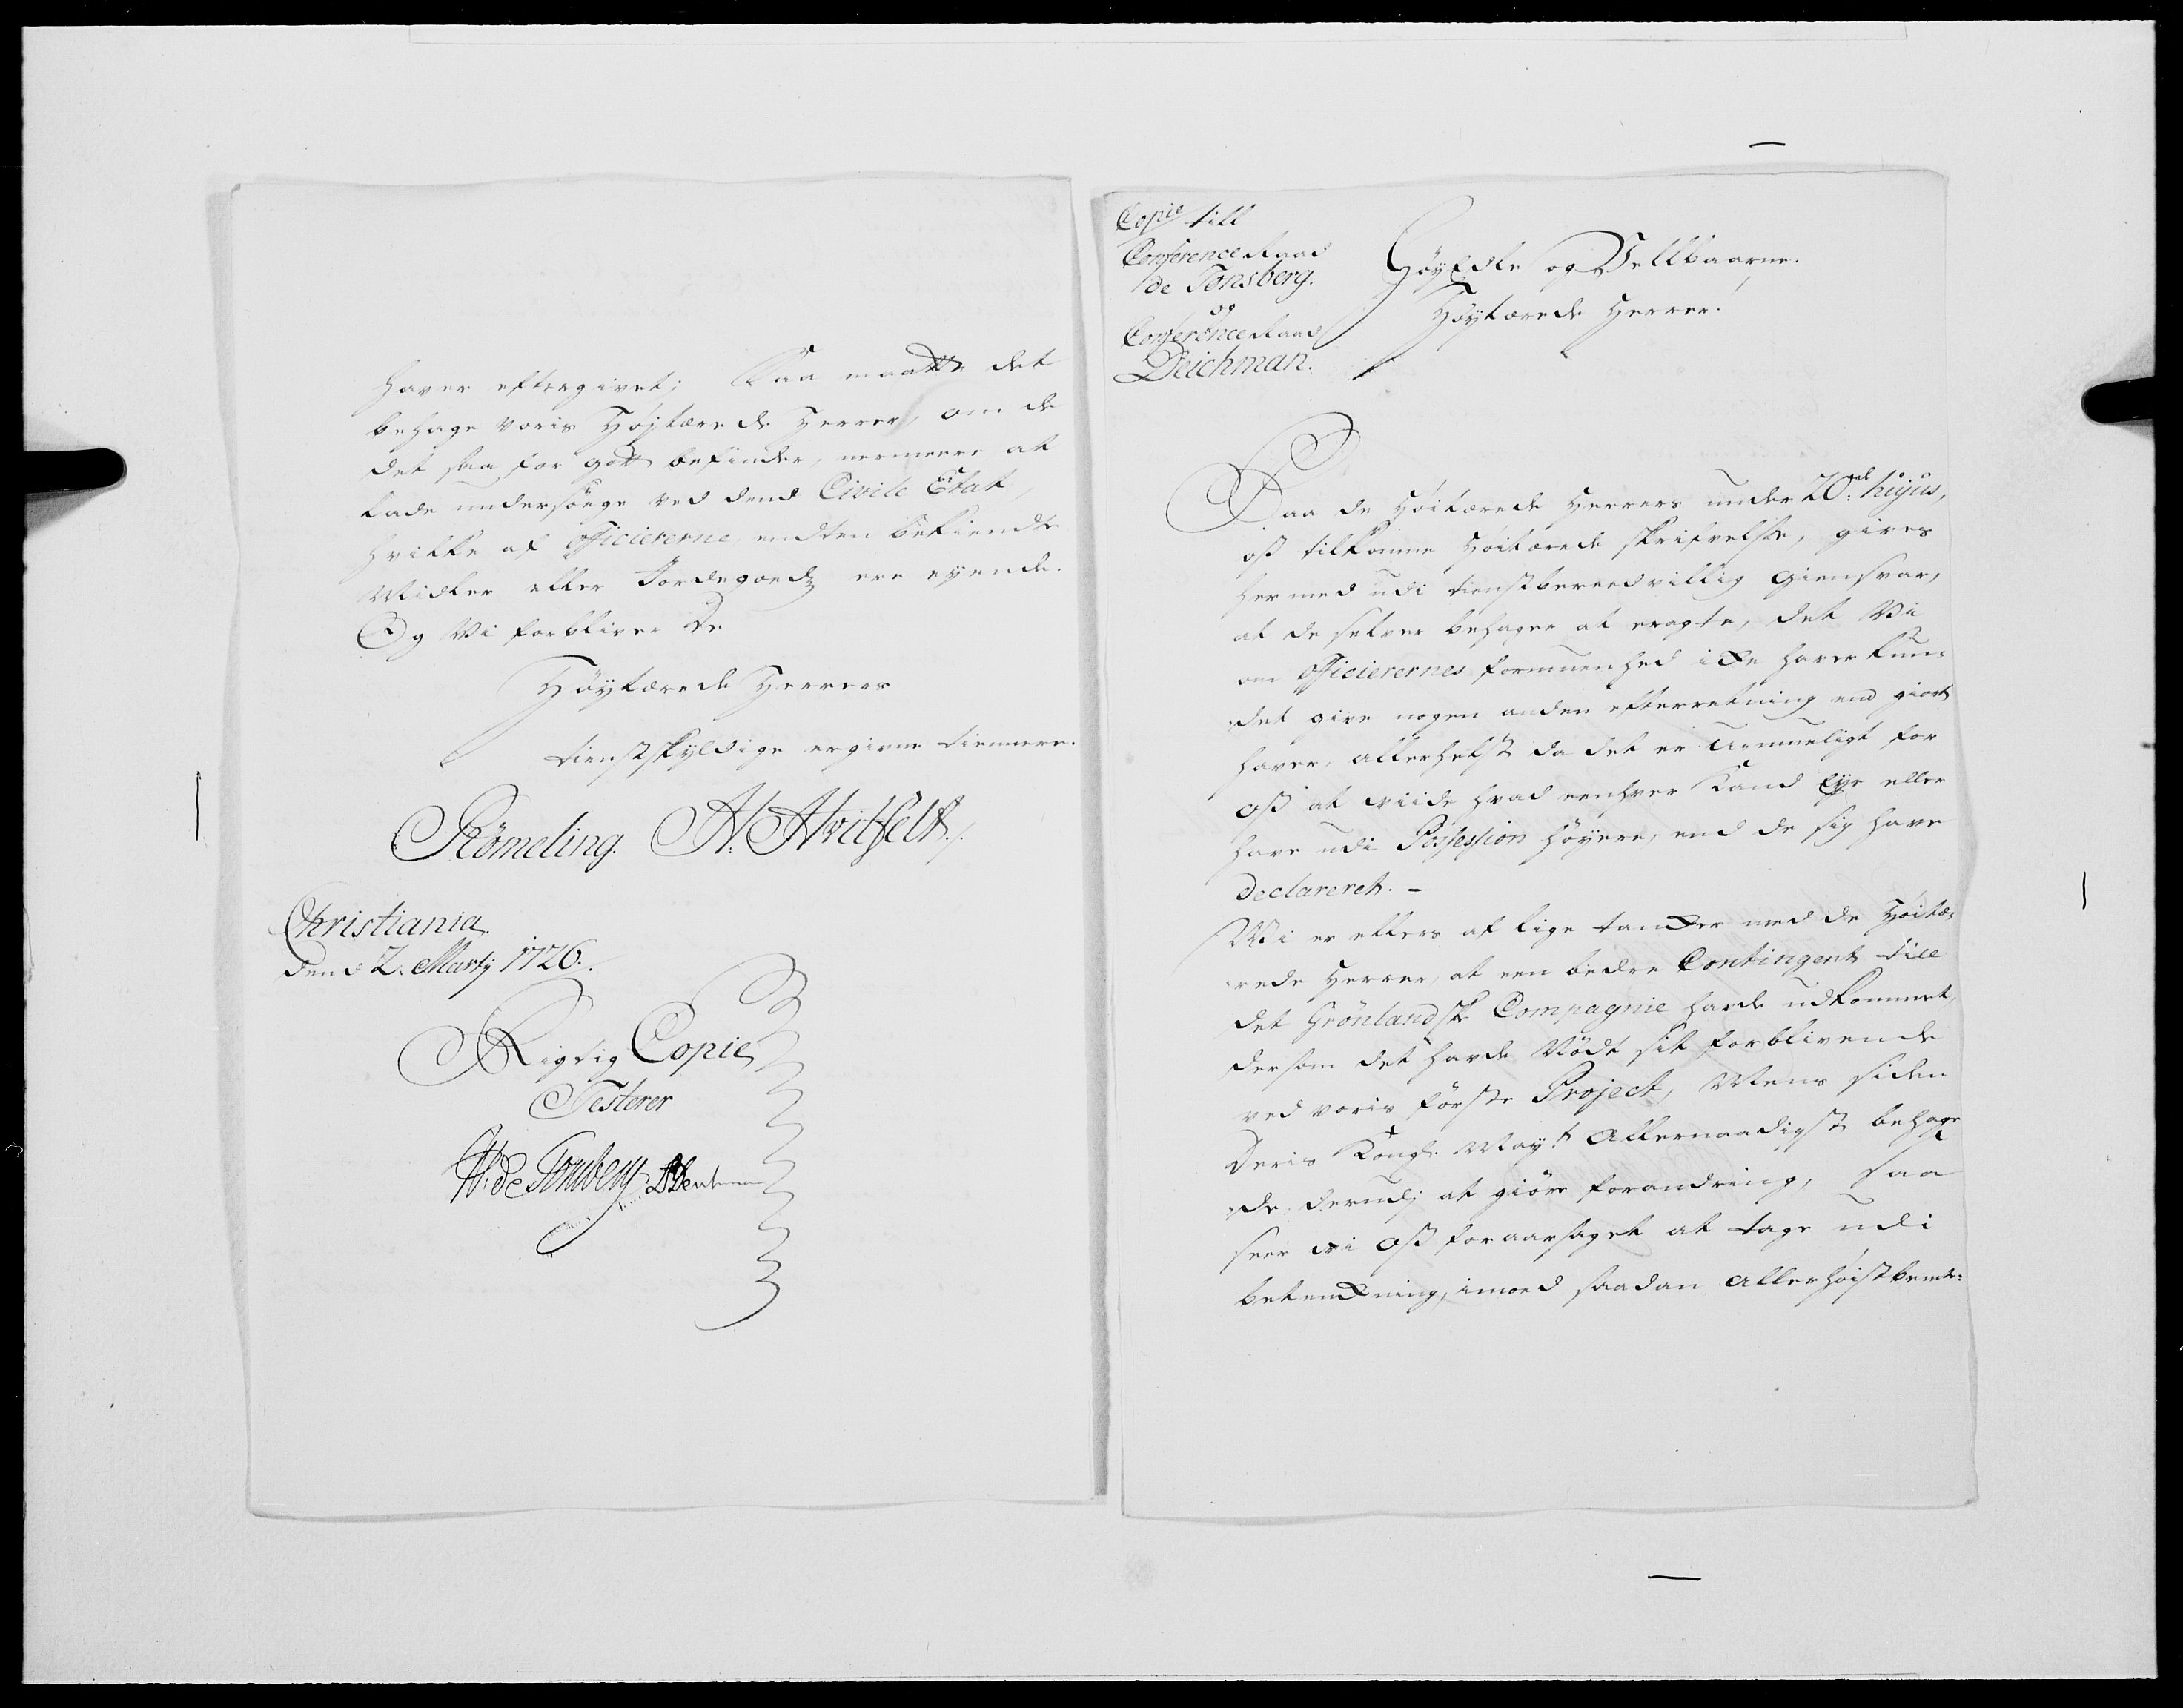 haver eftergivet; Saa maatte det
behage voris Højtærede Herrer, om de
det saa for gott befinder, nermere at
lade undersöege ved dend Civile Etat,
hvilke af Officiererne endten bekiendte
Midler eller Jordegoedz ere eyende.
Og Vi forbliver De
Höÿtærede Herrers
tienstskyldige ergivne tiennere.
Römeling. H: Hvitfeldt./.
Christiania.
dend 2. Martj 1726.
Rigtig Copie
Testerer
W: de Tonsberg
Copie till
Conference Raad
de Tonsberg.
og
Conference Raad
Deichman.
HöyEdle og Vellbaarne.
Höÿtærede Herrer!
Paa de Höitærede Herrers under 20de hujus,
oß tilkomne Höitærede skrifvelse, gives
hermed udi tienstberædvillig giensvar,
at de selver behager at eragte, det Vi
om Officierernes formuenhed icke haver kun-
det give nogen anden efterretning end giort
haver, allerhelst da det er Uemueligt for
oß at viide hvad eenhver Kand Eye eller
have udi Possession höyere, end de sig have
declareret. -
Vi er ellers af lige tancker med de Höitæ-
rede Herrer, at een bedre Contingent till
det Grönlandske Compagnie havde udkommet,
dersom det havde Nödt sit forblivende
ved voris förste Project, Mens siden
Deris Kongl. May:t Allernaadigst behage
de derudj at giöre forandring, saa
seer vi oß foraarsaget at tage udi
betenckning, imoed saadan allerhöistbemte: